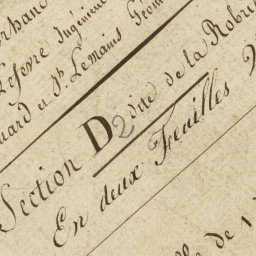 Lefevre Ingénieur
uard et Jh. Lemains Géom
Section D2 dite de la Robrie
En deux Feuilles 2
lle de 1